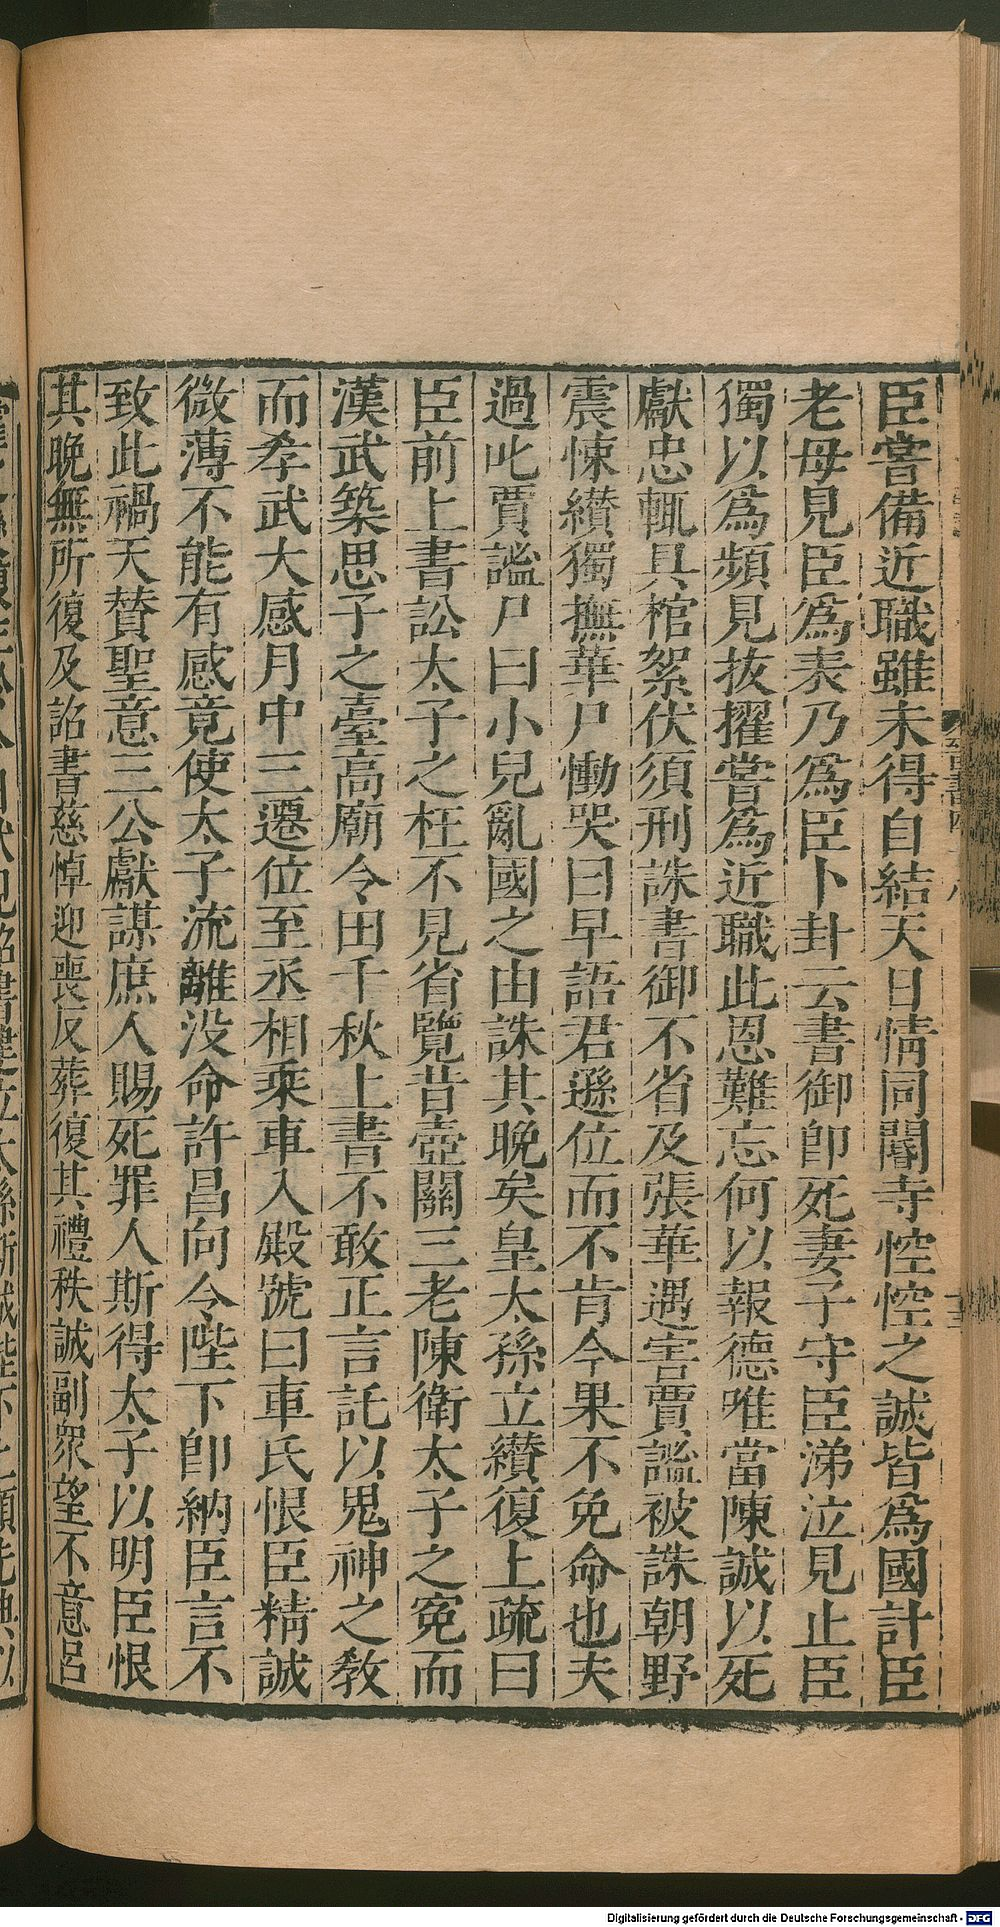 臣嘗備近職雖未得自結天日情同閽寺悾悾之誠皆爲國計臣
老母見臣爲表乃爲臣卜卦云書御卽死妻子守臣涕泣見止臣
獨以爲頻見拔擢嘗爲近職此恩難忘何以報德唯當陳誠以死
獻忠輒具棺絮伏須刑誅書御不省及張華遇害賈謐被誅朝野
震悚纘獨撫華尸慟哭曰早語君遜位而不肯今果不免命也夫
過叱賈謐尸曰小兒亂國之由誅其晚矣皇太孫立纘復上疏曰
臣前上書訟太子之枉不見省覽昔壺關三老陳衛太子之冤而
漢武築思子之臺高廟令田千秋上書不敢正言託以鬼神之教
而孝武大感月中三遷位至丞相乘車入殿號曰車氏恨臣精誠
微薄不能有感竟使太子流離没命許昌向令陛下卽納臣言不
致此禍天贊聖意三公獻謀庶人賜死罪人斯得太子以明臣恨
其晚無所復及詔書慈悼迎喪反葬復其禮秩誠副衆望不意呂
Digitalisierung gefördert durch die Deutsche Forschungsgemeinschaft - DFG